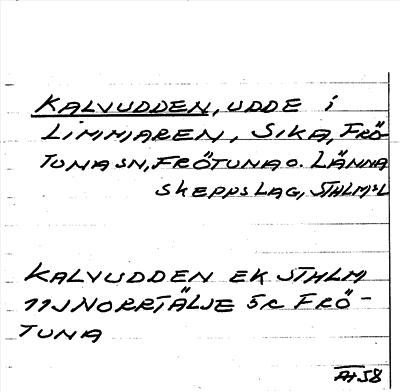 KALVUDDEN, UDDE i
LIMMAREN, SIKA, FRÖ-
TUNA SN, FRÖTUNA O. LÄNNA
SKEPPSLAG, STHLMSL
KALVUDDEN EK STHLM
11J NORRTÄLJE 5c FRÖ-
TUNA
58